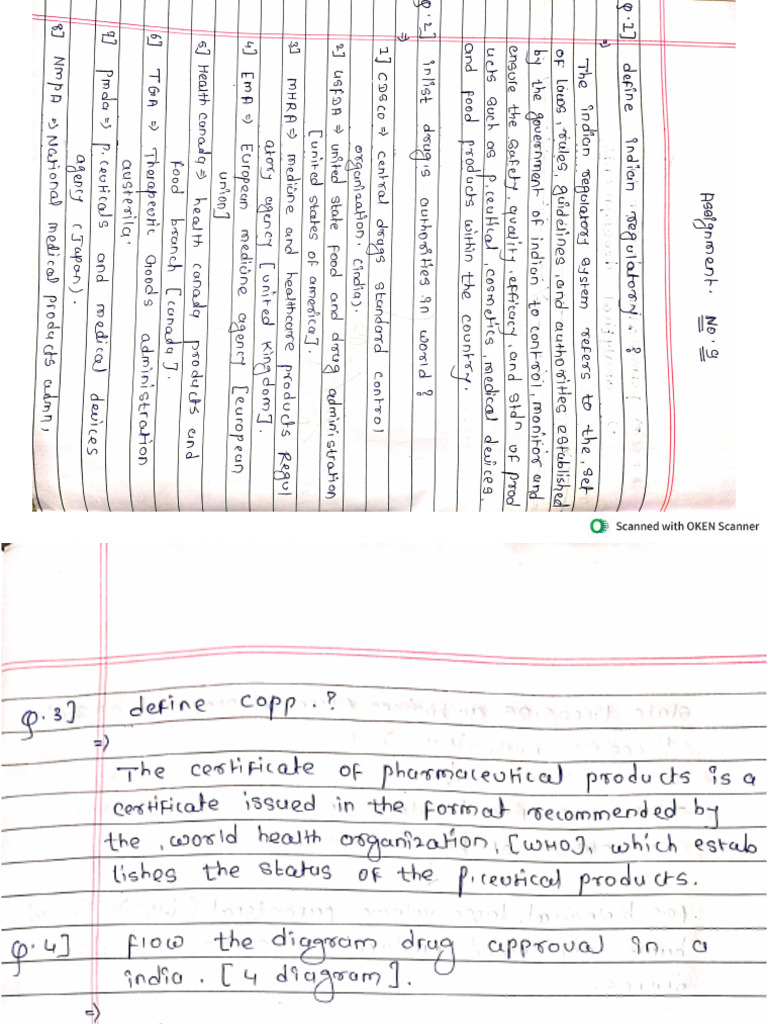 Assignment. No. 9
Q.1] define indian regulatory. ?
=>
The indian regulatory system refers to the, set
of laws, rules, guidelines, and authorities established
by the government of indian to control, monitor and
ensure the safety, quality, efficacy, and stdn of prod
ucts such as p.ceutical, cosmetics, medical devices,
and food products within the country.
Q.2] inlist drug,s authorities in world ?
=>
1] CDSCO => central drugs standard control
organization. (india).
2] USFDA => united state food and drug administration
[united states of america].
3] MHRA => medicine and healthcare products Regul
atory agency [united kingdom].
4] EMA => European medicine agency [european
union]
5] Health canada => health canada products and
food branch [canada].
6] TGA => Therapeutic Goods administration
austerila.
7] Pmda => p.ceuticals and medical devices
agency (Japan).
8] NmPA => National medical products admn,
Scanned with OKEN Scanner
Q.3] define copp. ?
=>
The certificate of pharmaceutical products is a
certificate issued in the format recommended by
the, world health organization, [WHO], which estab
lishes the status of the p.ceutical products.
Q.4] flow the diagram drug approval in a
india. [4 diagram].
=>